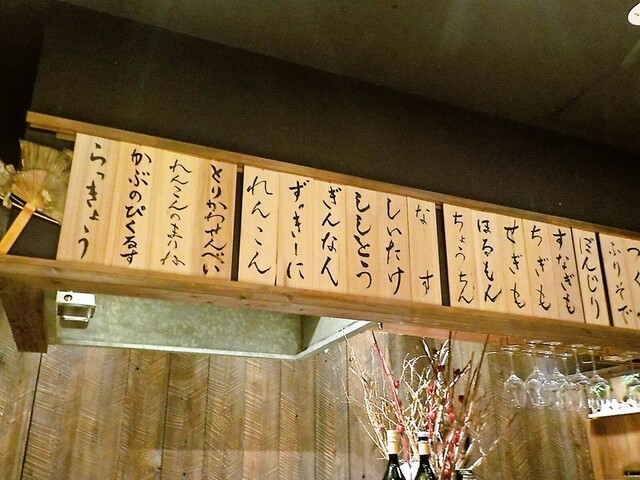 ふりそで
ぼんじり
すなぎも
ちぎも
せぎも
ほるもん
ちょうちん
なす
しいたけ
ししとう
ぎんなん
ずっきーに
れんこん
とりかわせんべい
れんこんのまりね
かぶのぴくるす
らっきょう